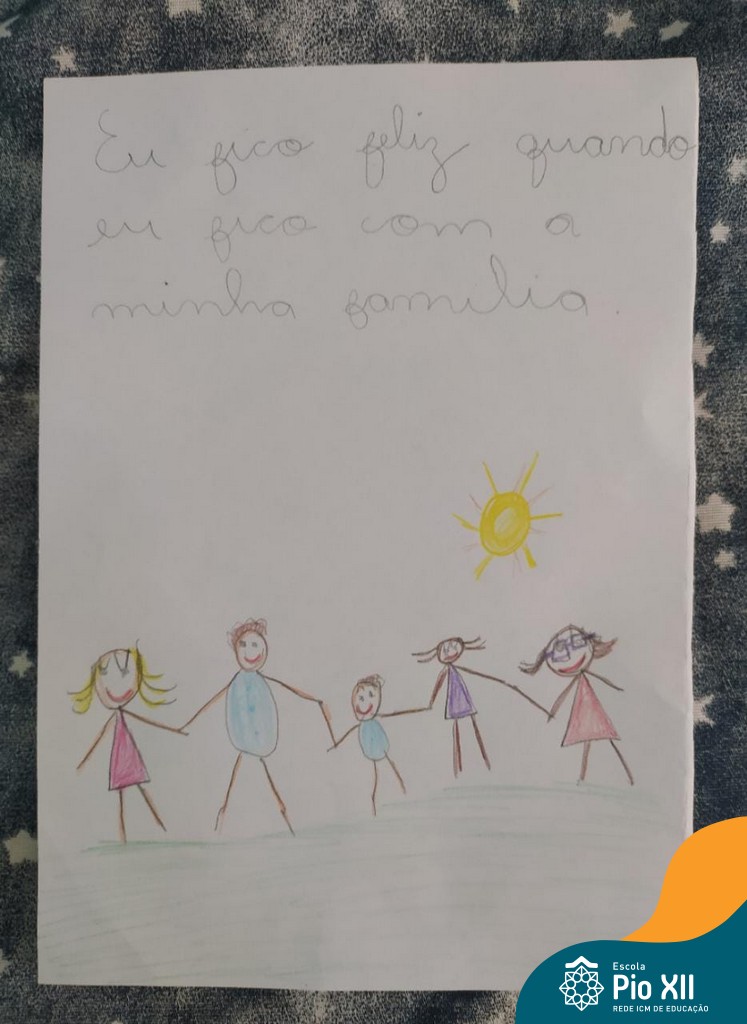 Eu fico feliz quando
eu fico com a
minha familia.
Escola
Pio XII
REDE ICM DE EDUCAÇÃO